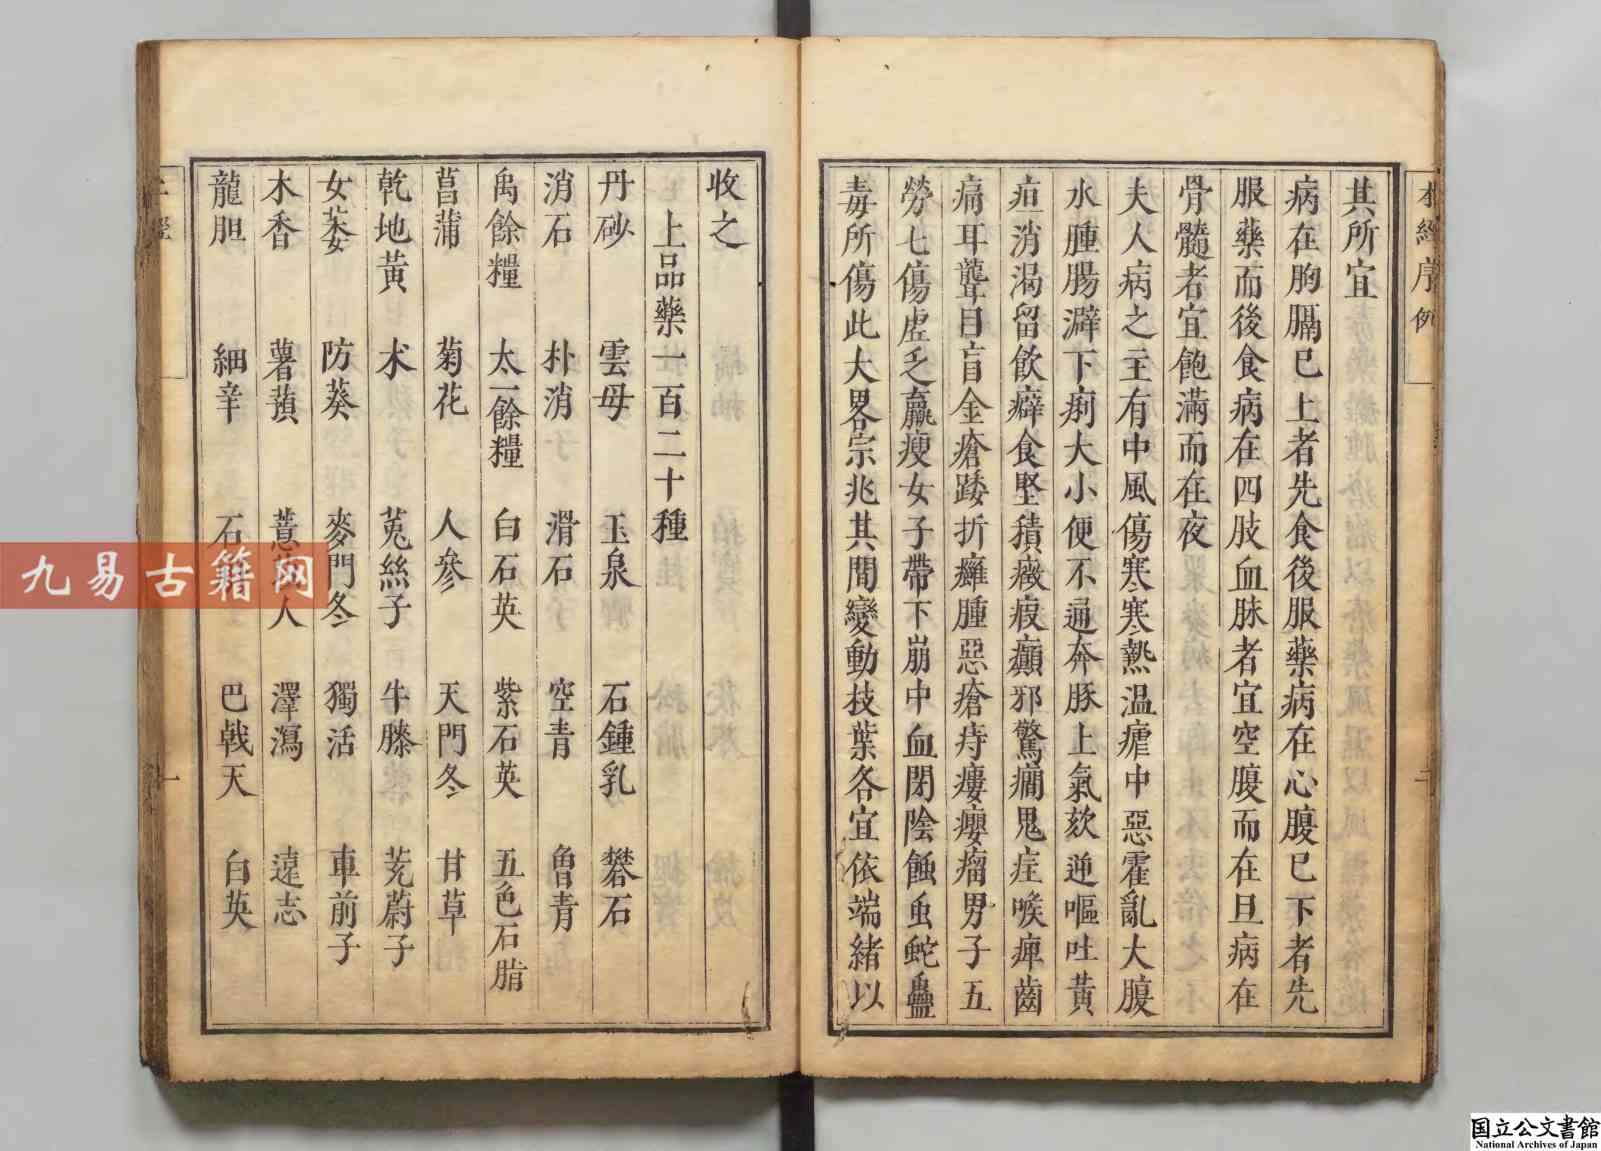 本經序例
其所宜
病在胸膈已上者先食後服藥病在心腹已下者先
服藥而後食病在四肢血脉者宜空腹而在旦病在
骨髓者宜飽滿而在夜
夫人病之主有中風傷寒寒熱温瘧中惡霍亂大腹
水腫腸澼下痢大小便不通奔豚上氣欬逆嘔吐黃
疸消渴留飲癖食堅積癥瘕癲邪驚癇鬼疰喉痺齒
痛耳聾目盲金瘡踒折癰腫惡瘡痔瘻癭瘤男子五
勞七傷虛乏羸瘦女子帶下崩中血閉陰蝕虫蛇蠱
毒所傷此大畧宗兆其間變動技葉各宜依端緒以
收之
上品藥一百二十種
丹砂 雲母 玉泉 石鍾乳 礬石
消石 朴消 滑石 空青 曾青
禹餘糧 太一餘糧 白石英 紫石英 五色石脂
菖蒲 菊花 人參 天門冬 甘草
乾地黃 术 菟絲子 牛膝 茺蔚子
女萎 防葵 麥門冬 獨活 車前子
木香 薯蕷 薏苡人 澤瀉 遠志
龍胆 細辛 石 巴戟天 白英
九易古籍网
国立公文書館
National Archives of Japan